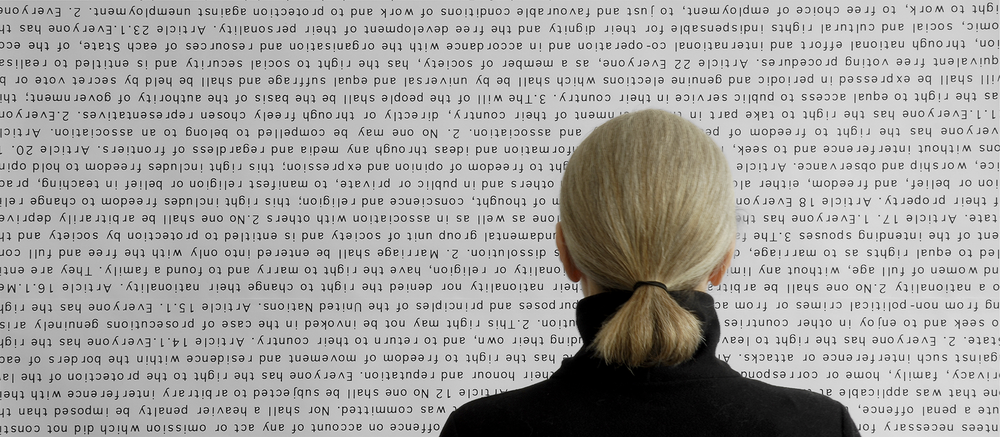 necess offence on account of any act or omission which did not constit
ute a penal offence, was committed. Nor shall a heavier penalty be imposed than th
one that was applicable at 12 No one shall be subjected to arbitrary interference with their
privacy, family, home or correspond their honour and reputation. Everyone has the right to the protection of the la
against such interference or attacks. A has the right to freedom of movement and residence within the borders of eac
State. 2. Everyone has the right to leav ding their own, and to return to their country. Article 14.1.Everyone has the righ
to seek and to enjoy in other countries ution. 2.This right may not be invoked in the case of prosecutions genuinely aris
ng from non-political crimes or from ac purposes and principles of the United Nations. Article 15.1. Everyone has the righ
o a nationality 2.No one shall be arbit their nationality nor denied the right to change their nationality. Article 16.1.Me
nd women of full age, without any lim nality or religion, have the right to marry and to found a family. They are enti
led to equal rights as to marriage, dissolution. 2. Marriage shall be entered into only with the free and full con
ent of the intending spouses 3.The f undamental group unit of society and is entitled to protection by society and th
State. Article 17. 1.Everyone has th one as well as in association with others 2.No one shall be arbitrarily deprive
f their property. Article 18 Everyone of thought, conscience and religion; this right includes freedom to change reli
ion or belief, and freedom, either al others and in public or private, to manifest religion or belief in teaching, prac
ice, worship and observance. Article t to freedom of opinion and expression; this right includes freedom to hold opin
ons without interference and to seek, formation and ideas through any media and regardless of frontiers. Article 20. 1
veryone has the right to freedom of pe and association. 2. No one may be compelled to belong to an association. Articl
1.1.Everyone has the right to take part in th nment of their country, directly or through freely chosen representatives. 2.Everyon
as the right to equal access to public service in their country. 3.The will of the people shall be the basis of the authority of government; thi
will shall be expressed in periodic and genuine elections which shall be by universal and equal suffrage and shall be held by secret vote or b
quivalent free voting procedures. Article 22 Everyone, as a member of society, has the right to social security and is entitled to realisa
ion, through national effort and international co-operation and in accordance with the organisation and resources of each State, of the eco
omic, social and cultural rights indispensable for their dignity and the free development of their personality. Article 23.1.Everyone has th
right to work, to free choice of employment, to just and favourable conditions of work and to protection against unemployment. 2. Everyon